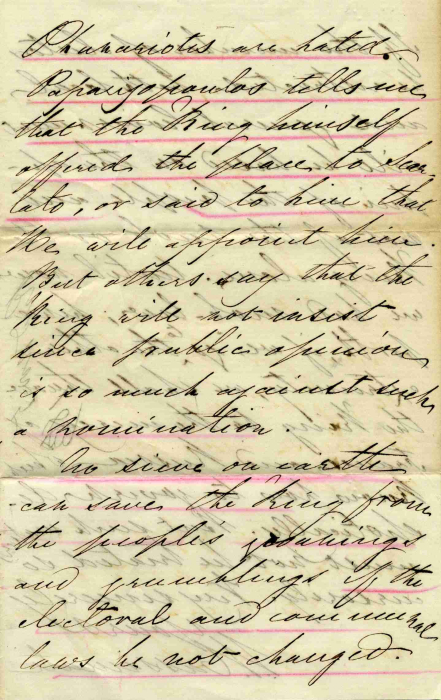 Phanariotes are hated.
Paparigopoulos tells me
that the King himself
offered the place to Scar-
lato, or said to him that
He will appoint him.
But others say that the
King will not insist
since public opinion
is so much against such
a nomination.
No sieve on earth
can save the King from
the people's
and grumblings if the
electoral and communal
laws be not changed.